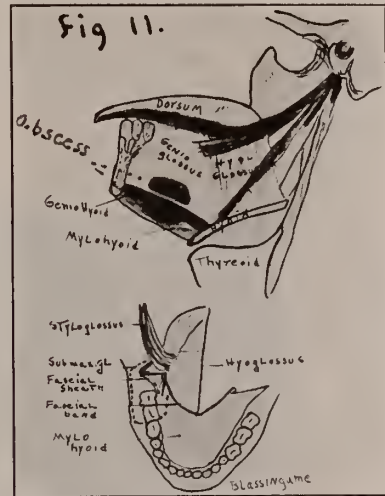 Fig 11.
DORSUM
Abscess
GENIO
GLOSSUS
HYO
GLOSSUS
GenioHyoid
MyLohyoid
Thyreoid
STYLOGLOSSUS
Submax.gl
HyoGLOSSUS
Fascial
Sheath
Fascial
band
MYLO
hyoid
BLASSINGUME